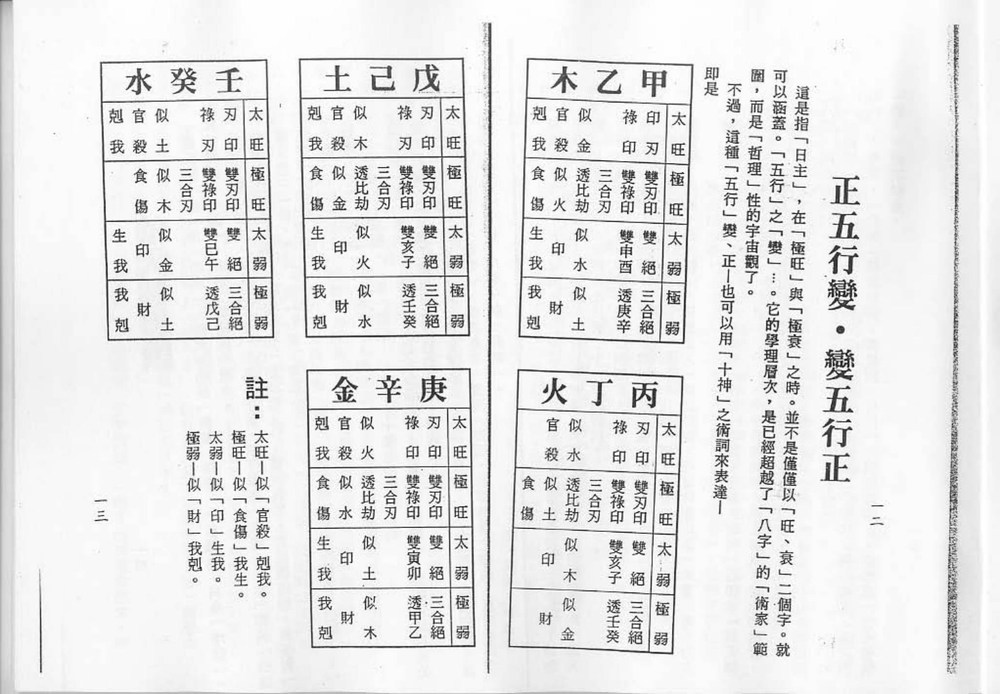 正五行變・變五行正
這是指「日主」，在「極旺」與「極衰」之時。並不是僅僅以「旺、衰」二個字。就
可以涵蓋。「五行」之「變」…。它的學理層次，是已經超越了「八字」的「術家」範
圍，而是「哲理」性的宇宙觀了。
不過，這種「五行」變、正—也可以用「十神」之術詞來表達—
即是
甲乙木
太旺 印刃 祿印 似金 官殺 剋我
極旺 雙刃印 雙祿印 三合刃 透比劫 似火 食傷
太弱 雙絕 雙申酉 似水 印 生我
極弱 三合絕 透庚辛 似土 財 我剋
丙丁火
太旺 刃印 祿印 似水 官殺
極旺 雙刃印 雙祿印 三合刃 透比劫 似土 食傷
太弱 雙絕 雙亥子 似木 印
極弱 三合絕 透壬癸 似金 財
一二
戊己土
太旺 刃印 祿刃 似木 官殺 剋我
極旺 雙刃印 雙祿印 三合刃 透比劫 似金 食傷
太弱 雙絕 雙亥子 似火 印 生我
極弱 三合絕 透壬癸 似水 財 我剋
庚辛金
太旺 刃印 祿印 似火 官殺 剋我
極旺 雙刃印 雙祿印 三合刃 透比劫 似水 食傷
太弱 雙絕 雙寅卯 似土 印 生我
極弱 三合絕 透甲乙 似木 財 我剋
壬癸水
太旺 刃印 祿刃 似土 官殺 剋我
極旺 雙刃印 雙祿印 三合刃 似木 食傷
太弱 雙絕 雙巳午 似金 印 生我
極弱 三合絕 透戊己 似土 財 我剋
註：
太旺—似「官殺」剋我。
極旺—似「食傷」我生。
太弱—似「印」生我。
極弱—似「財」我剋。
一三